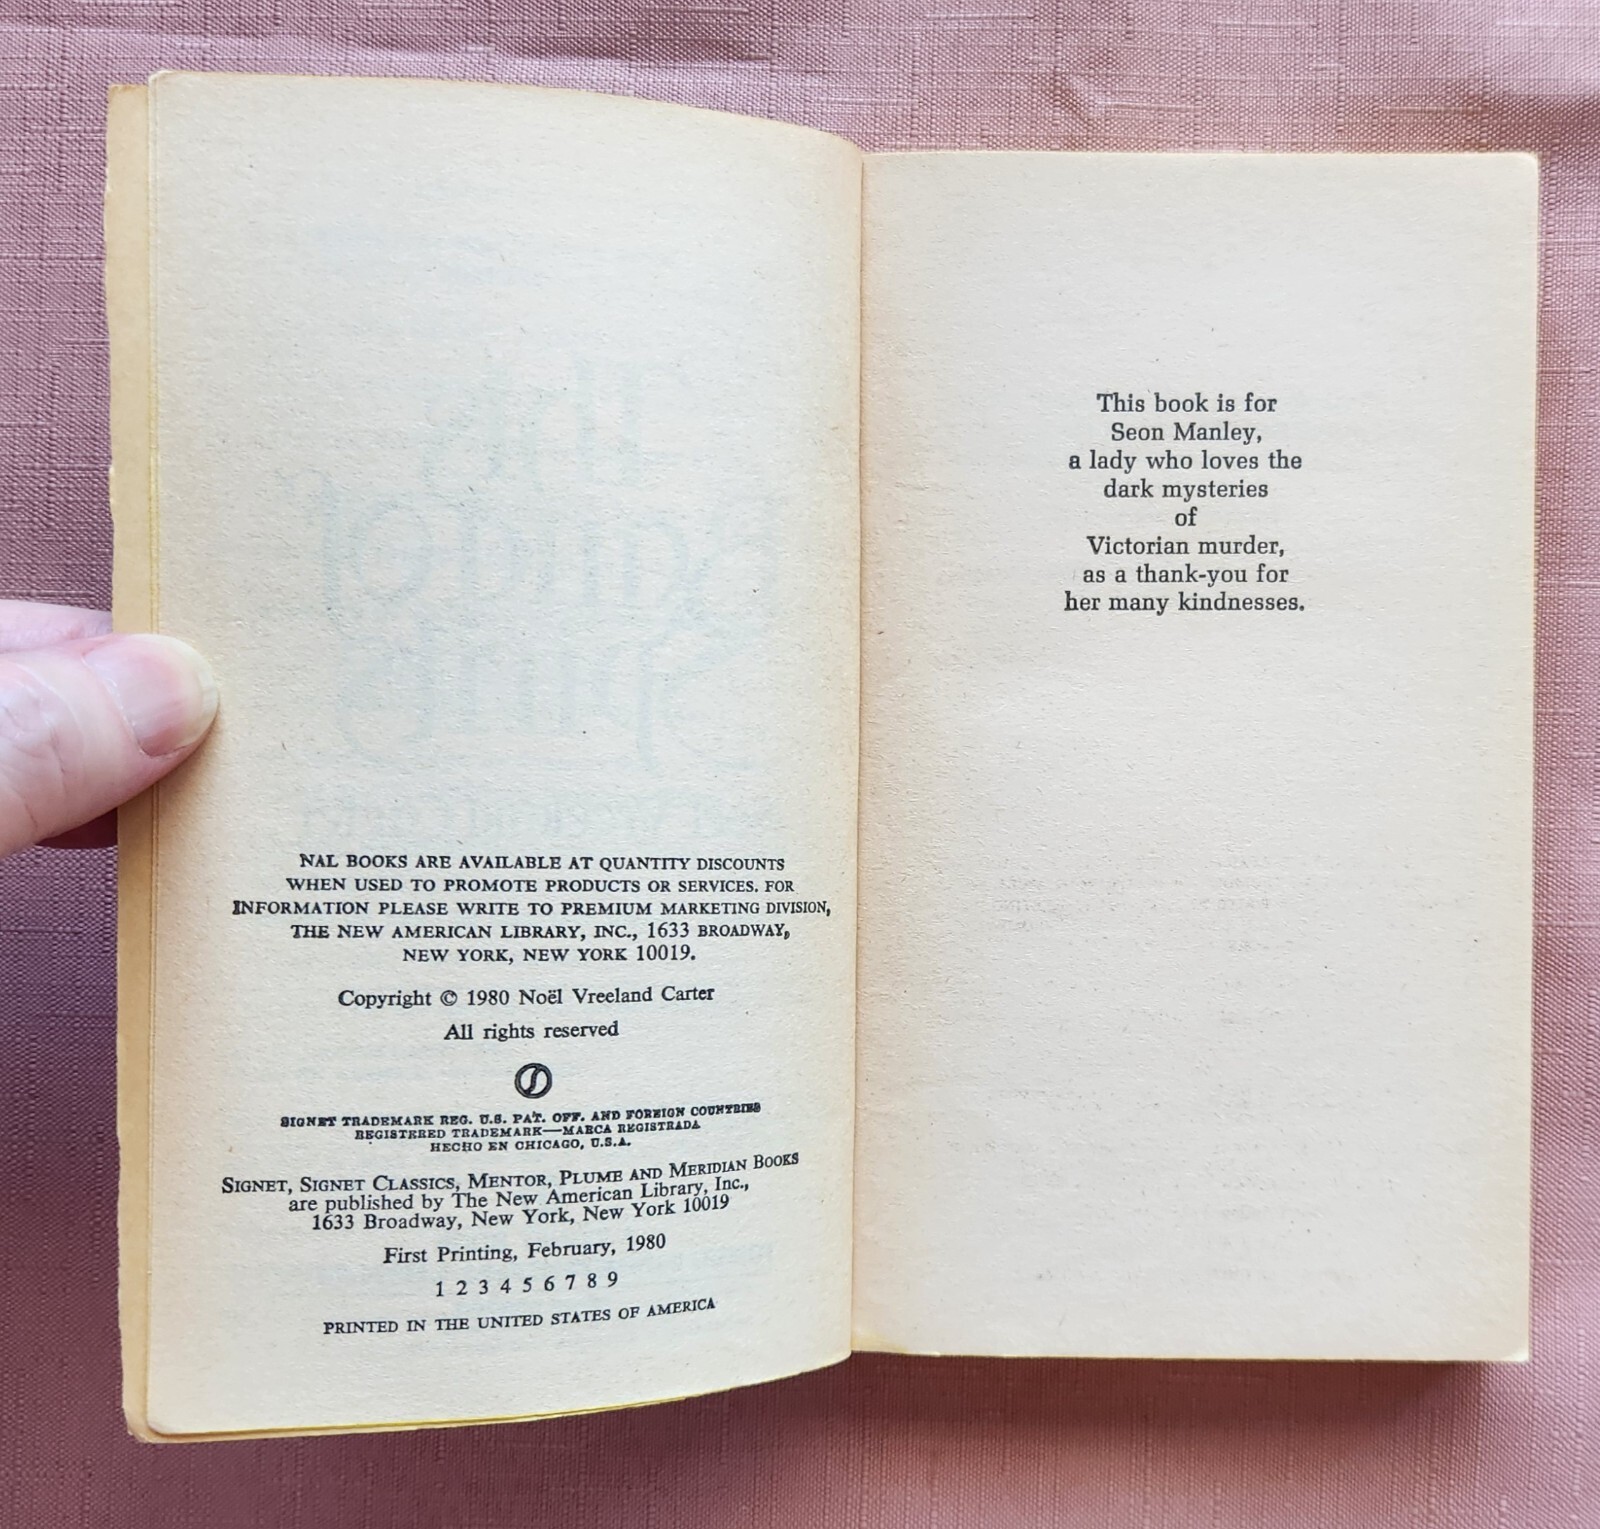 NAL BOOKS ARE AVAILABLE AT QUANTITY DISCOUNTS
WHEN USED TO PROMOTE PRODUCTS OR SERVICES. FOR
INFORMATION PLEASE WRITE TO PREMIUM MARKETING DIVISION,
THE NEW AMERICAN LIBRARY, INC., 1633 BROADWAY,
NEW YORK, NEW YORK 10019.
Copyright © 1980 Noël Vreeland Carter
All rights reserved
SIGNET TRADEMARK REG. U.S. PAT. OFF. AND FOREIGN COUNTRIES
REGISTERED TRADEMARK—MARCA REGISTRADA
HECHO EN CHICAGO, U.S.A.
SIGNET, SIGNET CLASSICS, MENTOR, PLUME AND MERIDIAN BOOKS
are published by The New American Library, Inc.,
1633 Broadway, New York, New York 10019
First Printing, February, 1980
1 2 3 4 5 6 7 8 9
PRINTED IN THE UNITED STATES OF AMERICA
This book is for
Seon Manley,
a lady who loves the
dark mysteries
of
Victorian murder,
as a thank-you for
her many kindnesses.